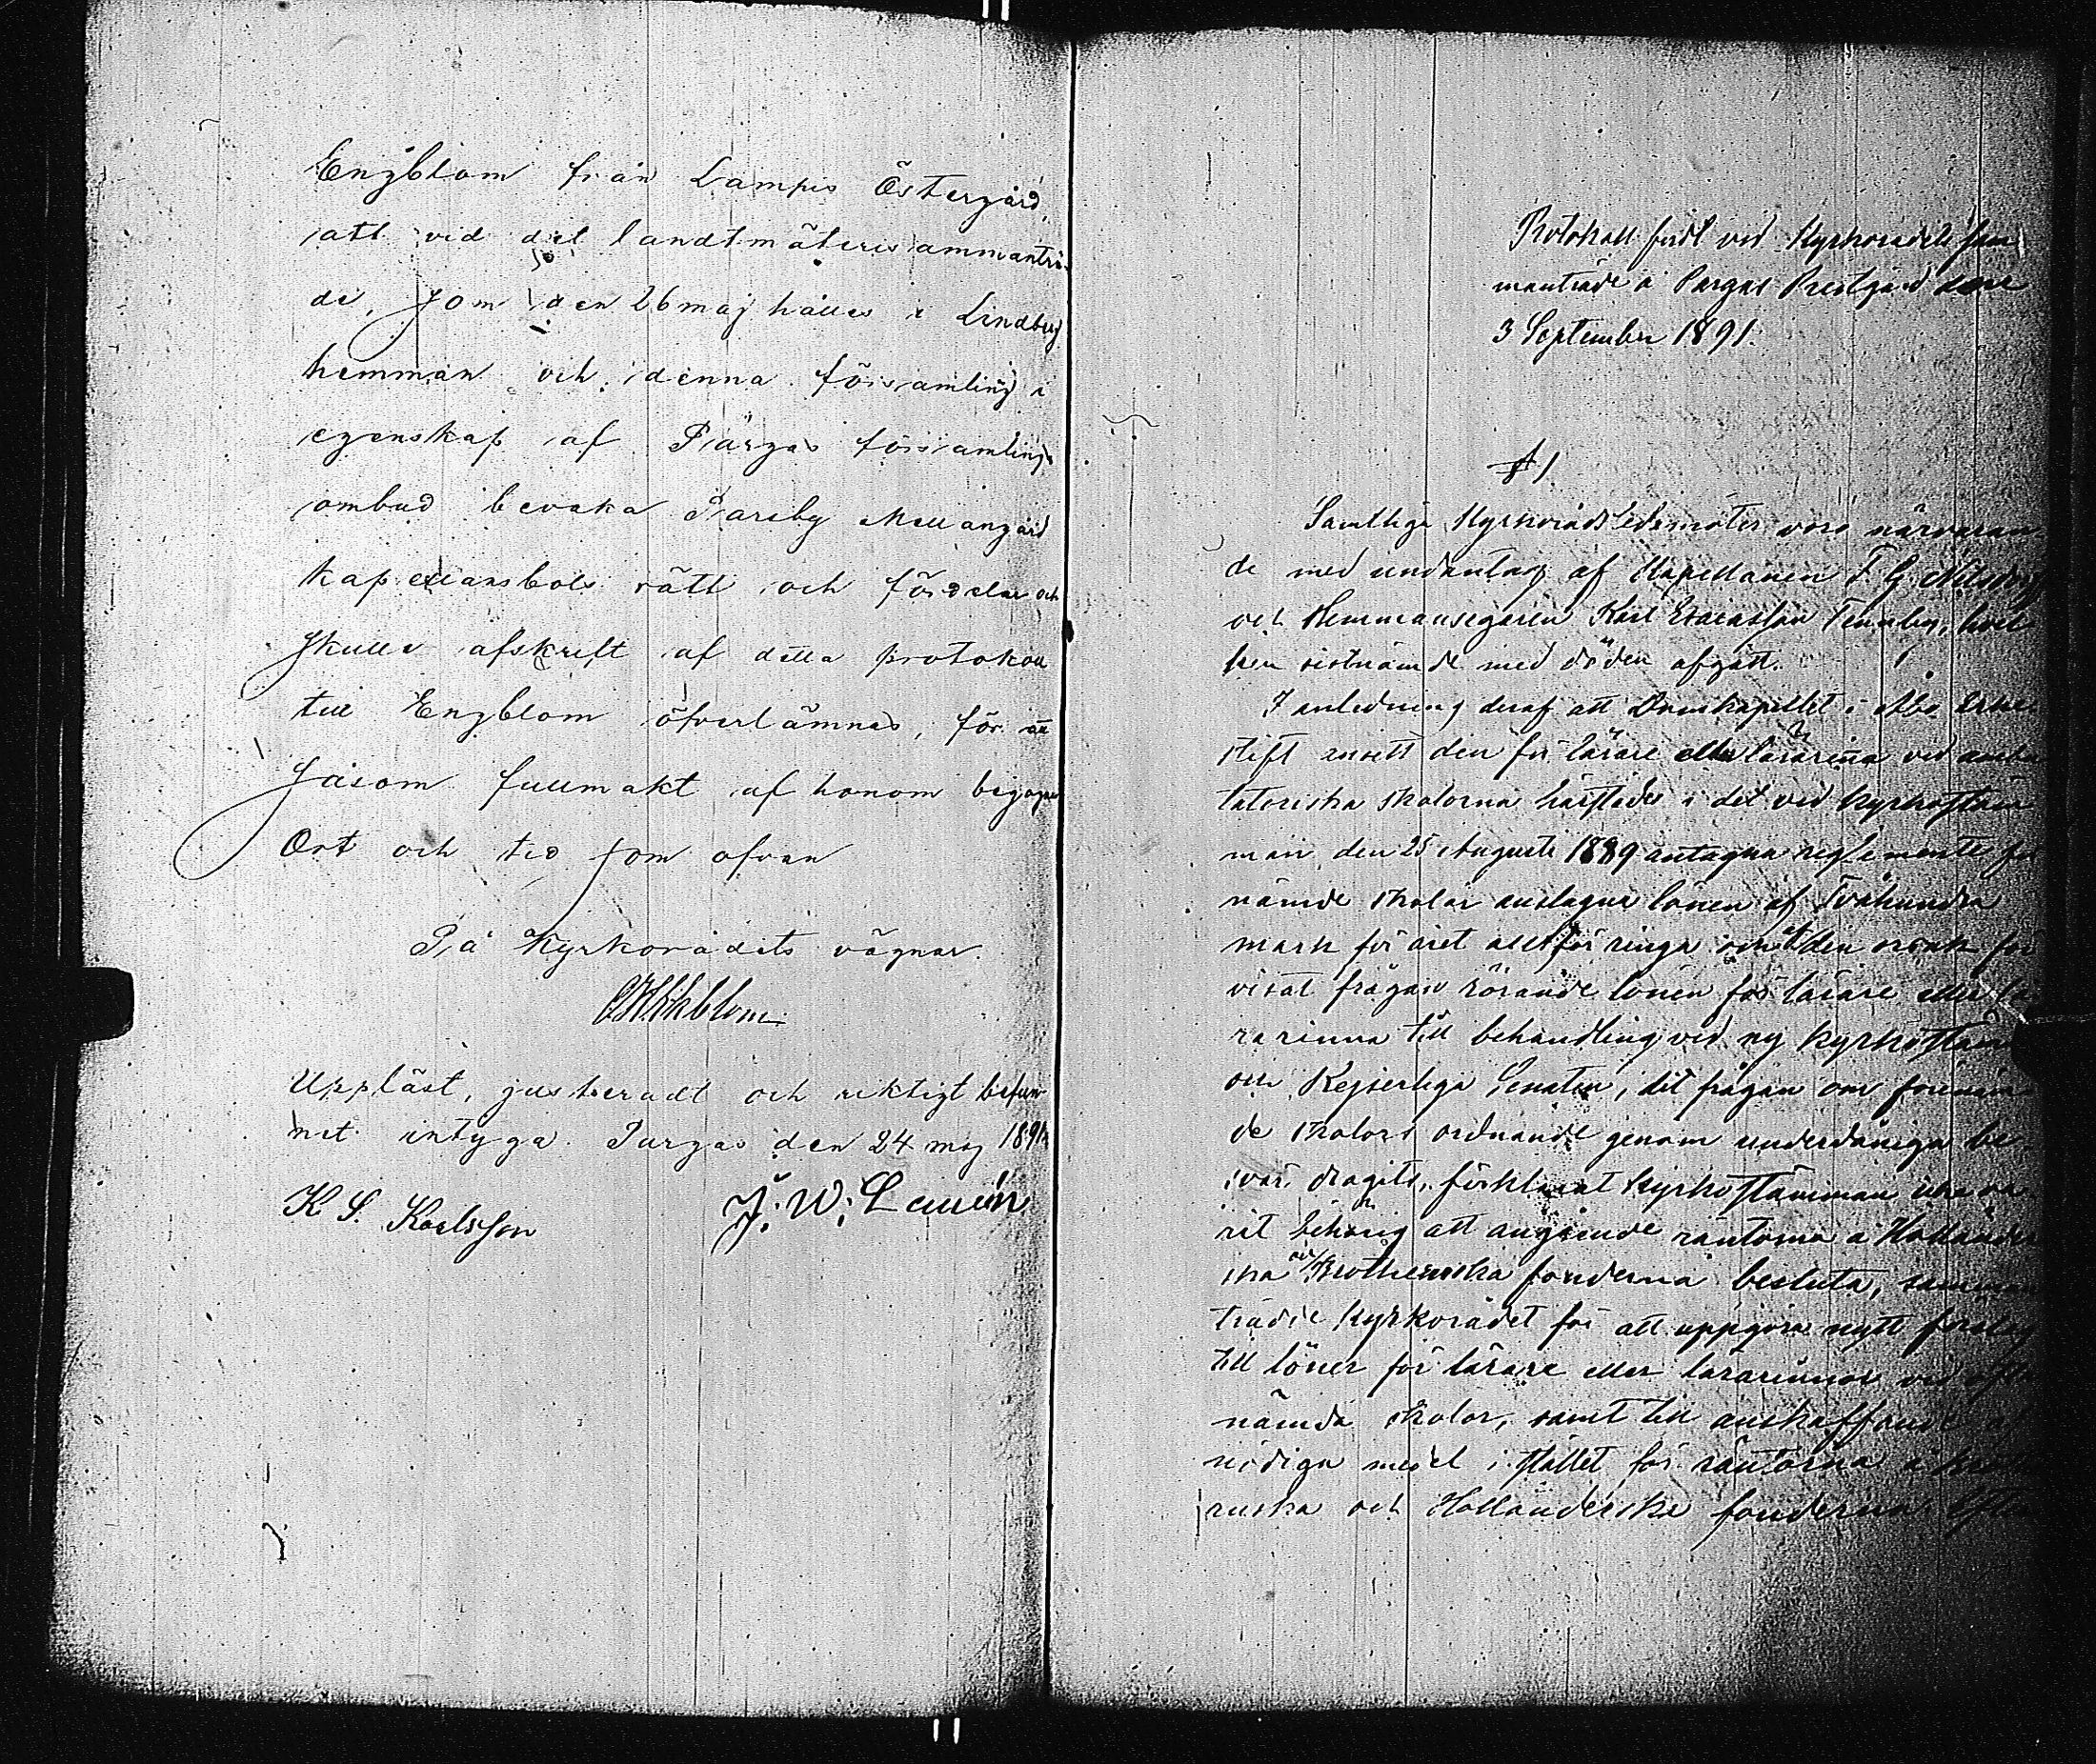 Engblom från Lampis Östergård,
att vid det landtmäterisammanträ-
de, som den 26 maj hålles i Lindberg
hemman och denna församling i
egenskap af Pargas församlings
ombud bevaka Parsby Mellangård
kapellansbols rätt och fördelar och
skulle afskrift af detta protokoll
till Engblom öfverlämnas, för att
såsom fullmakt af honom begagnas
Ort och tid som ofvan
På Kyrkorådets vägnar.
Uppläst, justeradt och riktigt befun-
net intyga. Pargas den 24 maj 1891.
K S. Karlsson J. W. Lauren
Protokoll fördt vid Kyrkorådets sam
manträde å Pargas Prestgård den
3 September 1891.
§ 1.
Samtliga Kyrkorådsledamöter voro närvaran
de med undantag af Kapellanen F. G.
och Hemmansegaren Karl Tennby, hvil
ken sistnämde med döden afgått.
I anledning deraf att Domkapitlet i Åbo Erke
stift ansett den för lärare eller lärarinna vid ambu
latoriska skolorna härstädes i det vid kyrkostäm
man den 25 Augusti 1889 antagna reglemente för
nämde skolor anslagna lönen af Tvåhundra
mark för året allt för ringa och åt den orsak för
visat frågan rörande lönen för lärare eller lä-
rarinna till behandling vid ny kyrkostäm
och Kejserliga Senaten, dit frågan om förenäm
de skolors ordnande genom underdåniga be
svär dragits, förklarat kyrkostämman icke va
rit behörig att angående räntorna å Holländer
ska och Krotheruska fonderna besluta, samman
trädde Kyrkorådet för att uppgöra nytt förslag
till löner för lärare eller lärarinnor vid ofta
nämda skolor, samt till anskaffande a
nödiga medel i stället för räntorna å Krothe
ruska och Holländerska fonderna. Efter